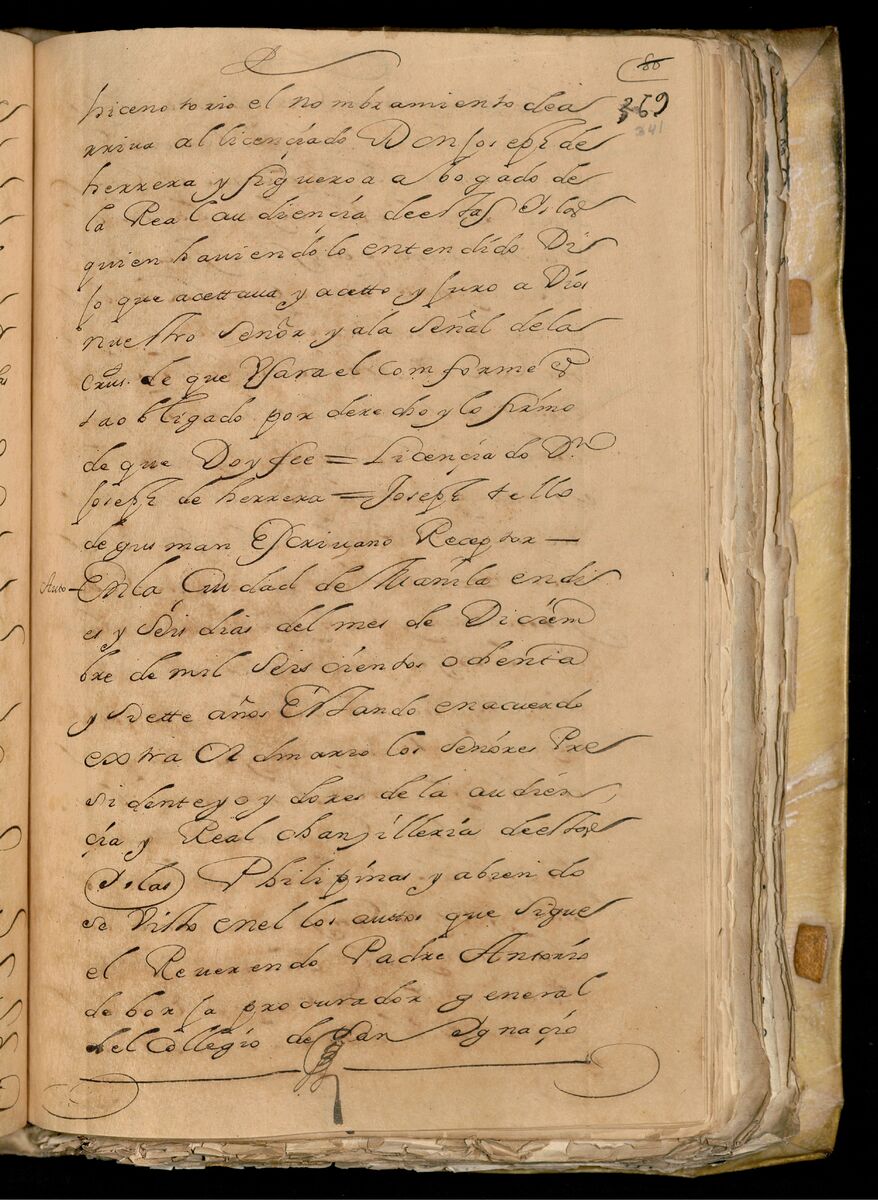 80
359
341
hice notorio el nombramiento dea
rriua al licenciado Don Joseph de
herrera y figueroa abogado de
la Real audiencia de estas Yslas
quien hauiendolo entendido Di
jo que acettaua y acetto y juro a Dios
nuestro señor y ala señal dela
crus. de que Vsara el comforme es
ta obligado por derecho y lo firmo
de que Doy fee = Licenciado Dn
Joseph de herrera = Joseph tello
de gusman Escriuano Receptor —
Auto — En la Ciudad de Manila en dies
es y seis dias del mes de Diciem
bre de mil seis cientos ochenta
y siette años Estando en acuerdo
extra Ordinario los señores Pre
sidente y oydores de la audien
çia y Real chanzilleria de estas
Yslas Philipinas y abiendo
se Visto en el los auttos que sigue
el Reuerendo Padre Antonio
de borja procurador general
del Collegio de San Ygnaçio